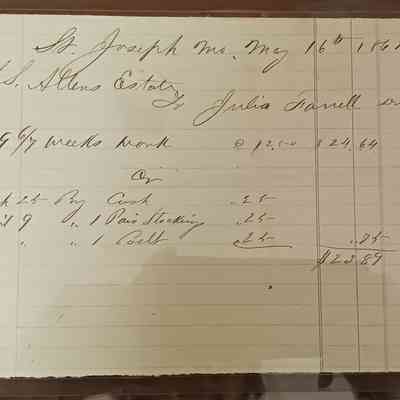 St. Joseph Mo. May 16th 186
S. Allens Estate
To Julia Farrell
9 6/7 weeks work @ $2.50 $24.64
Cr
25 By Cash .25
9 " 1 Pair Stocking .25
" " 1 Belt .25 .75
$23.89